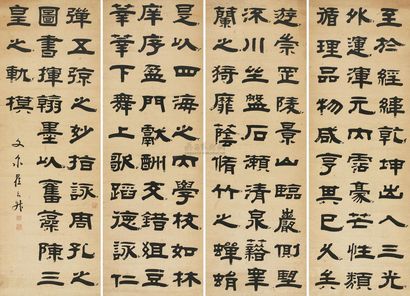 至於經緯乾坤出入三光
外運渾元內霑豪芒性類
循理品物咸亨其已久矣
遊崇岡陵景山臨巖側望
流川坐盤石漱清泉藉皋
蘭之猗靡蔭脩竹之蟬蜎
是以四海之內學校如林
庠序盈門獻酬交錯俎豆
莘莘下舞上歌蹈德詠仁
彈五弦之妙指詠周孔之
圖書揮翰墨以奮藻陳三
皇之軌模